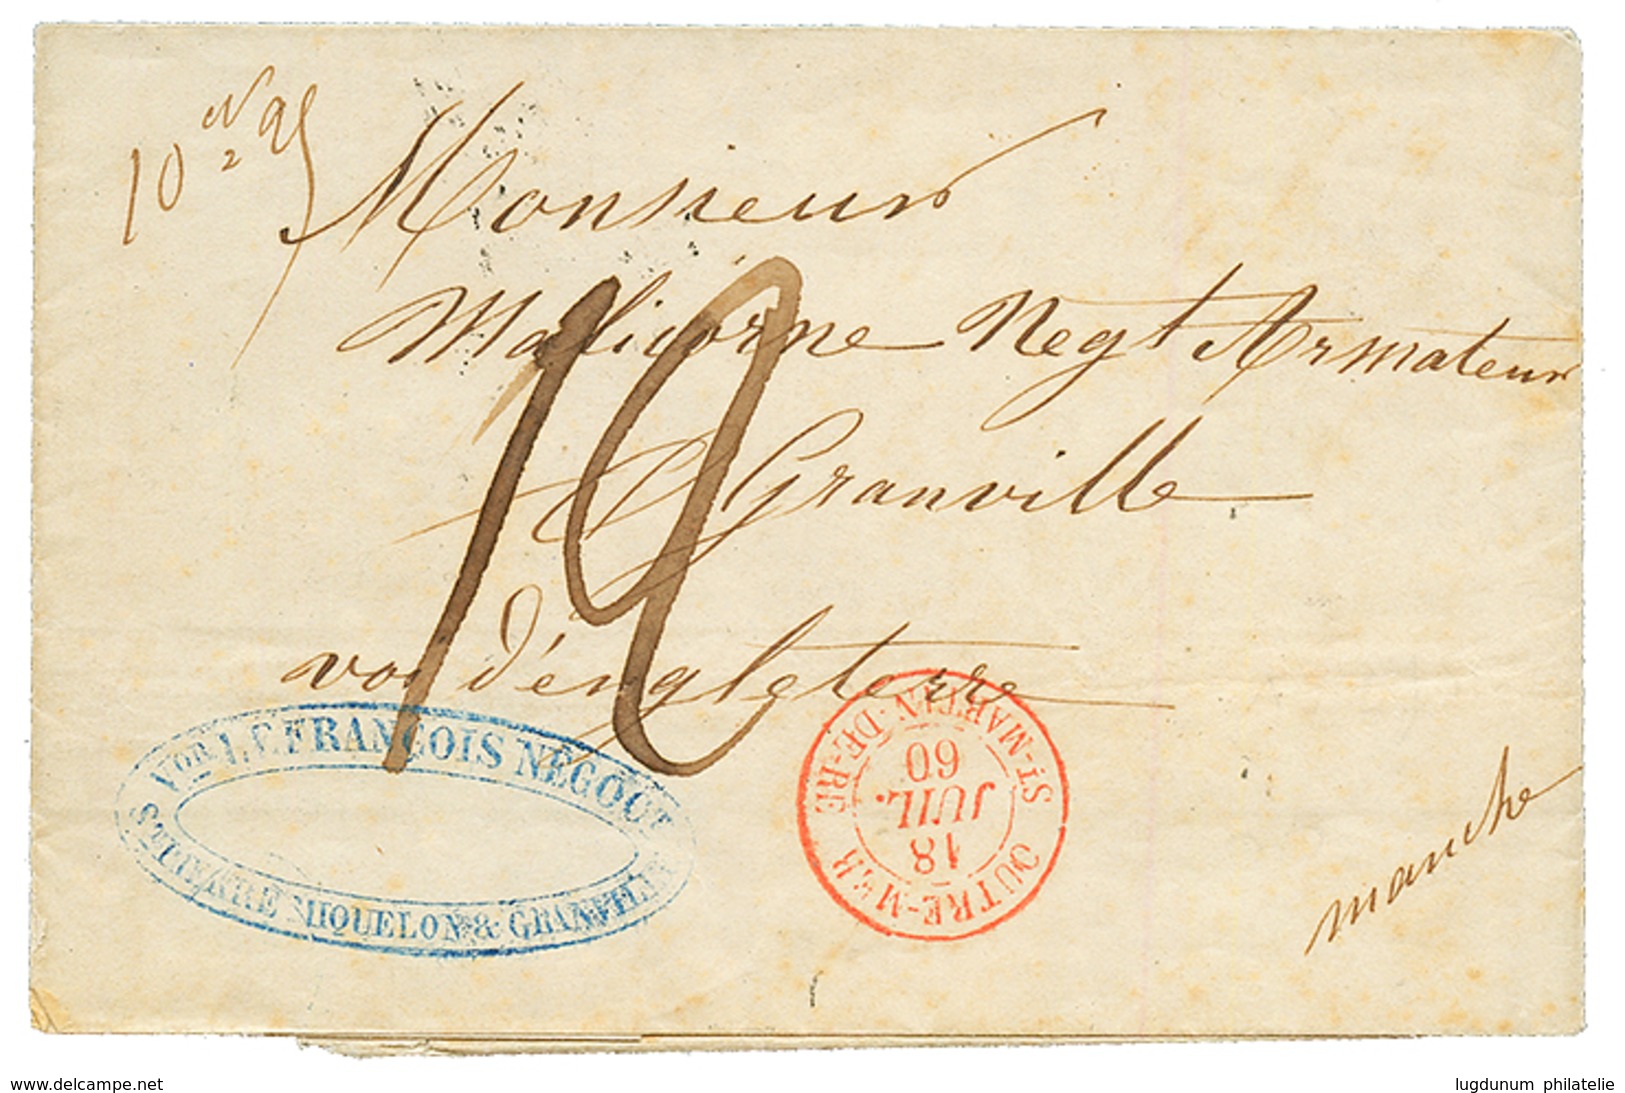 10
Monsieur
Malicorne Negt Armateur
Granville
voi d'engleterre
12
Vor J. F. FRANÇOIS NÉGOCT
St PIERRE MIQUELON & GRANVILLE
OUTRE-MER ST-MARTIN-DE-RE
18
JUIL.
60
manche
www.delcampe.net
lugdunum philatelie